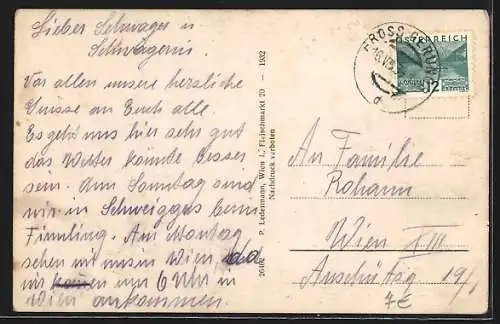 Lieber Schwager u
Schwägerin.
Vor allen unsere herzliche
Grüsse an Euch alle.
Es geht uns hier sehr gut
das Wetter könnte besser
sein. Am Sonntag sind
wir in Schweiggers beim
Firmling. Am Montag
sehen wir unser Wien
wir um 6 Uhr in
Wien ankommen.
26462 P. Ledermann, Wien I., Fleischmarkt 20 — 1932
Nachdruck verboten
GROSS GERUNGS
ÖSTERREICH
12
An Familie
Rohann
Wien XIII
19/1
7€